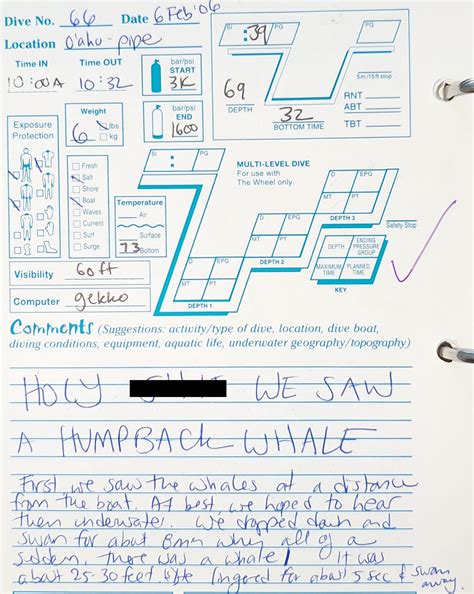 Dive No. 66 Date 6 Feb '06
Location O'ahu - pipe
Time IN Time OUT
10:00A 10:32
bar/psi
START
3K
bar/psi
END
1600
SI :39 PG
69
DEPTH
32
BOTTOM TIME
5m/15ft stop
RNT
ABT
TBT
Exposure
Protection
Weight
6 lbs
kg
Fresh
Salt
Shore
Boat
Waves
Current
Surf
Surge
Temperature
Air
Surface
73 Bottom
Visibility 60ft
Computer gekko
SI : PG
MULTI-LEVEL DIVE
For use with
The Wheel only.
D EPG
MT PT
DEPTH 1
D EPG
MT PT
DEPTH 2
D EPG
MT PT
DEPTH 3
Safety Stop
DEPTH ENDING PRESSURE GROUP
MAXIMUM TIME PLANNED TIME
KEY
Comments (Suggestions: activity/type of dive, location, dive boat,
diving conditions, equipment, aquatic life, underwater geography/topography)
HOLY WE SAW
A HUMPBACK WHALE
First we saw the whales at a distance
from the boat. At best, we hoped to hear
them underwater. We dropped down and
swam for about 8mn when all of a
sudden, there was a whale! It was
about 25-30 feet, lingered for about 5 sec & swam
away.